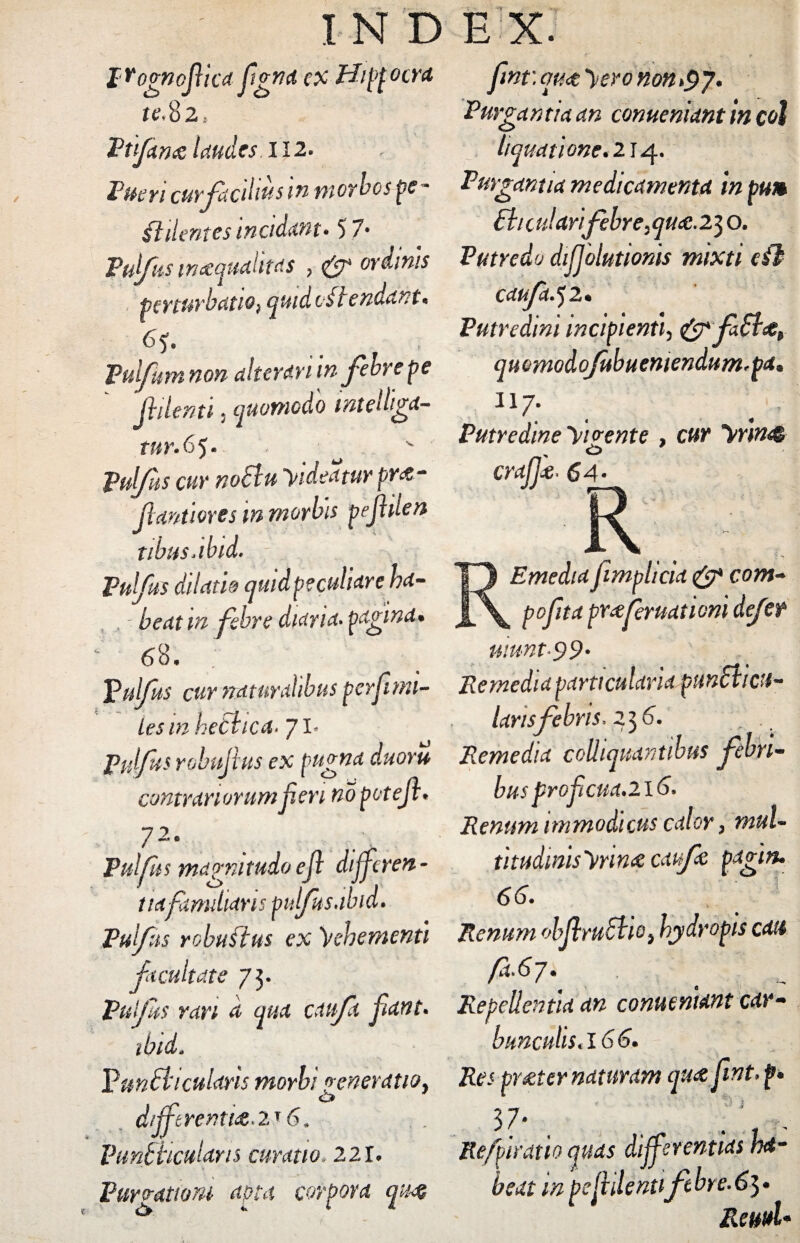 INDEX.
Prognostica signa ex Hippocra
te.82.
Ptisanæ laudes 112.
Pueri cur facilius in morbos pe-
stilentes incidant. 57.
Pulsus inæqualitas, & ordinis
perturbatio, quid ostendant.
65.
Pulsum non alterari in febre pe
stilenti, quomodo intelliga-
tur.65.
Pulsus cur noctu videãtur præ-
stantiores in morbis pestilen
tibus.ibid.
Pulsus dilatio quid peculiare ha-
beat in febre diaria. pagina.
68.
Pulsus cur naturalibus persimi-
les in hectica. 71.
Pulsus robustus ex pugna duorũ
contrariorum fieri nõ potest.
72.
Pulsus magnitudo est differen-
tia familiaris pulsus.ibid.
Pulsus robustus ex vehementi
facultate 73.
Pulsus rari à qua causa fiant.
ibid.
Puncticularis morbi generatio,
differentiæ.216.
Puncticularis curatio. 221.
Purgationi apta corpora quæ
sint: quæ vero non.97.
Purgantia an conueniant in col
liquatione.214.
Purgantia medicamenta in pun
cticulari febre, quæ.230.
Putredo dissolutionis mixti est
causa.52.
Putredini incipienti, & factæ,
quomodo subueniendum.pa.
117.
Putredine vigente, cur vrinæ
crassæ. 64.
R
REmedia simplicia & com-
posita præseruationi deser
uiunt.99.
Remedia particularia puncticu-
laris febris. 236.
Remedia colliquantibus febri-
bus proficua.216.
Renum immodicus calor, mul-
titudinis vrinæ causæ pagin.
66.
Renum obstructio, hydropis cau
sa.67.
Repellentia an conueniant car-
bunculis.166.
Res præter naturam quæ sint. p.
37.
Respiratio quas differentias ha-
beat in pestilenti febre.63.
Reuul-